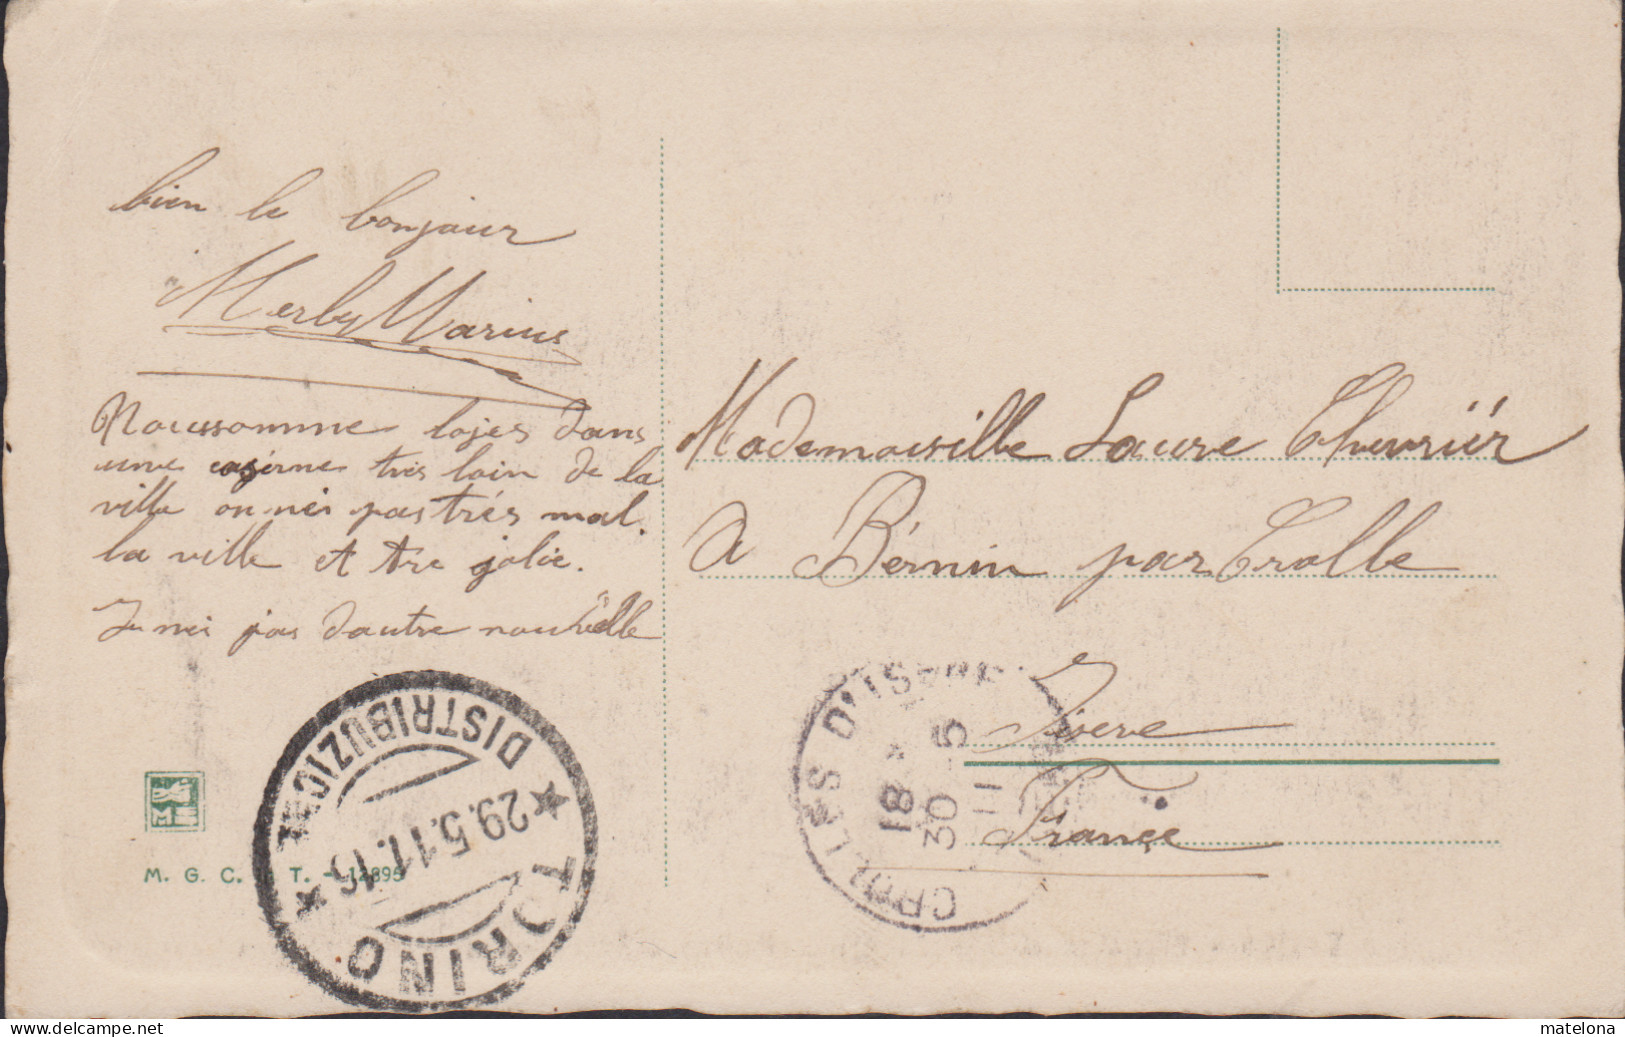 bien le bonjour
Merby Marius
Noussomme lojés dans
une caserne très loin de la
ville on nei pas très mal.
la ville et tre jolie.
Je nei pas dautre nouvëlle
Mademoiselle Laure Chevriér
A Bérnin par Crolle
Isere
France
TORINO
DISTRIBUZIONE
29.5.11.16
CROLLES D'ISERE
18
30 - 5
11
M. G. C. T. - 12895
matelona
http://www.delcampe.net